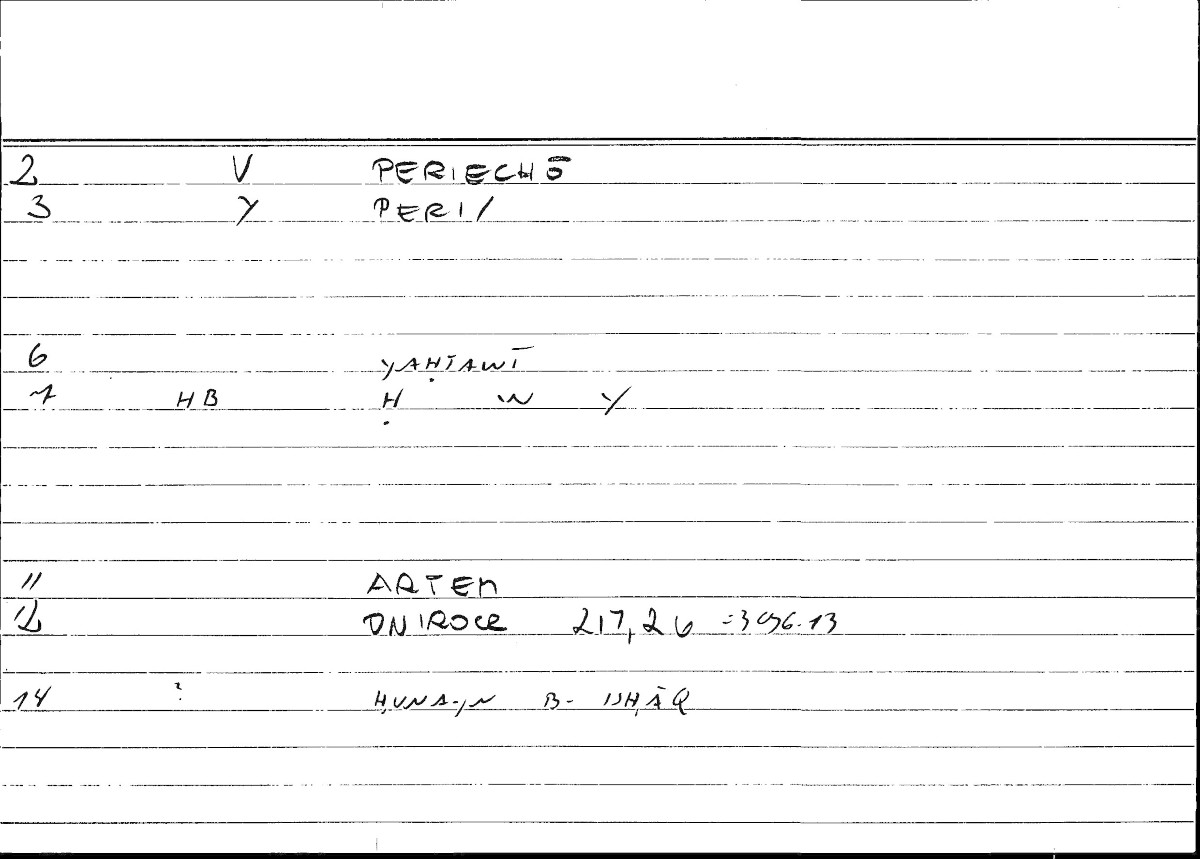 2 V PERIECHŌ
3 Y PERI/
6 YAḤTAWĪ
7 HB Ḥ W Y
11 ARTEM
12 ONIROCR 217,26 =396.13
14 ? ḤUNAYN B- ISḤĀQ